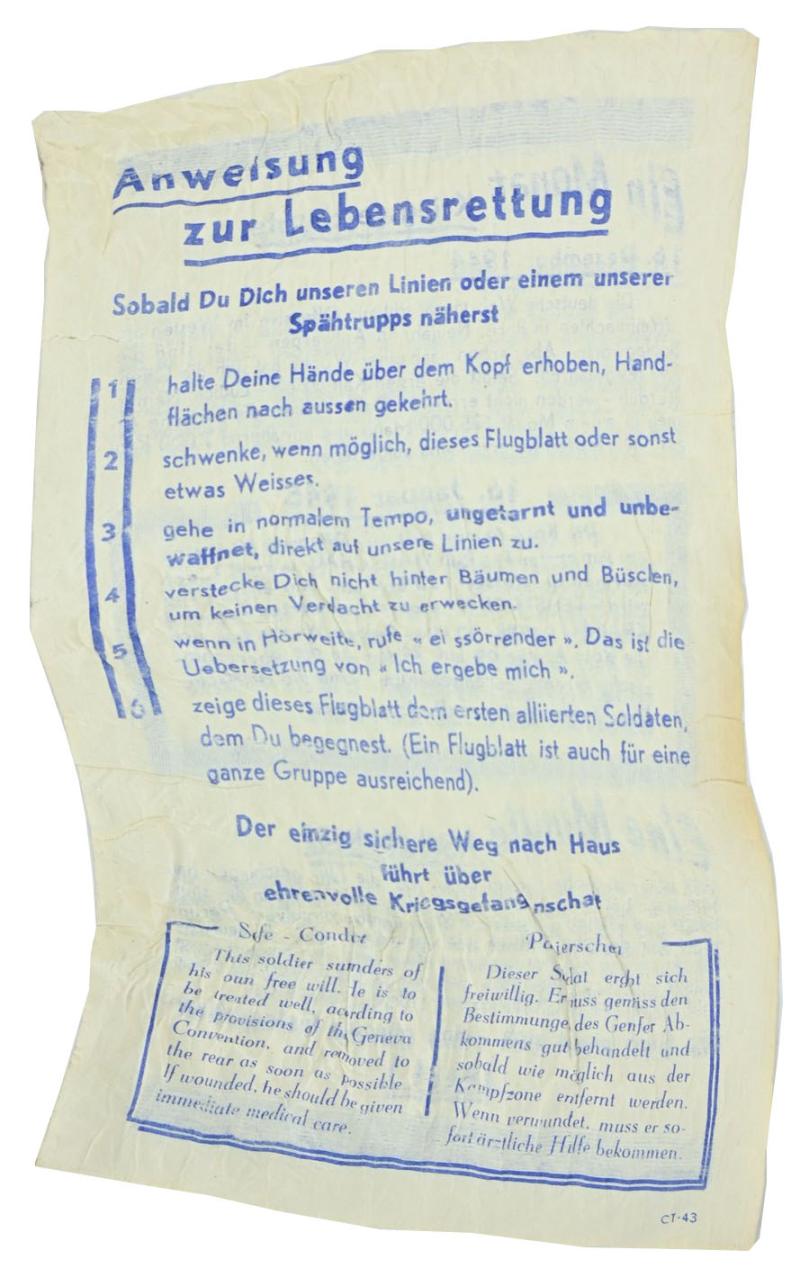 Anweisung
zur Lebensrettung
Sobald Du Dich unseren Linien oder einem unserer
Spähtrupps näherst
1 halte Deine Hände über dem Kopf erhoben, Hand-
flächen nach aussen gekehrt.
2 schwenke, wenn möglich, dieses Flugblatt oder sonst
etwas Weisses.
3 gehe in normalem Tempo, ungetarnt und unbe-
waffnet, direkt auf unsere Linien zu.
4 verstecke Dich nicht hinter Bäumen und Büschen,
um keinen Verdacht zu erwecken.
5 wenn in Hörweite, rufe « ei ssörrender ». Das ist die
Uebersetzung von « Ich ergebe mich ».
6 zeige dieses Flugblatt dem ersten alliierten Soldaten,
dem Du begegnest. (Ein Flugblatt ist auch für eine
ganze Gruppe ausreichend).
Der einzig sichere Weg nach Haus
führt über
ehrenvolle Kriegsgefangenschaft
Safe - Conduct
This soldier surrenders of
his own free will. He is to
be treated well, according to
the provisions of the Geneva
Convention, and removed to
the rear as soon as possible
If wounded, he should be given
immediate medical care.
Passierschein
Dieser Soldat ergibt sich
freiwillig. Er muss gemäss den
Bestimmungen des Genfer Ab-
kommens gut behandelt und
sobald wie möglich aus der
Kampfzone entfernt werden.
Wenn verwundet, muss er so-
fort ärztliche Hilfe bekommen.
CT-43